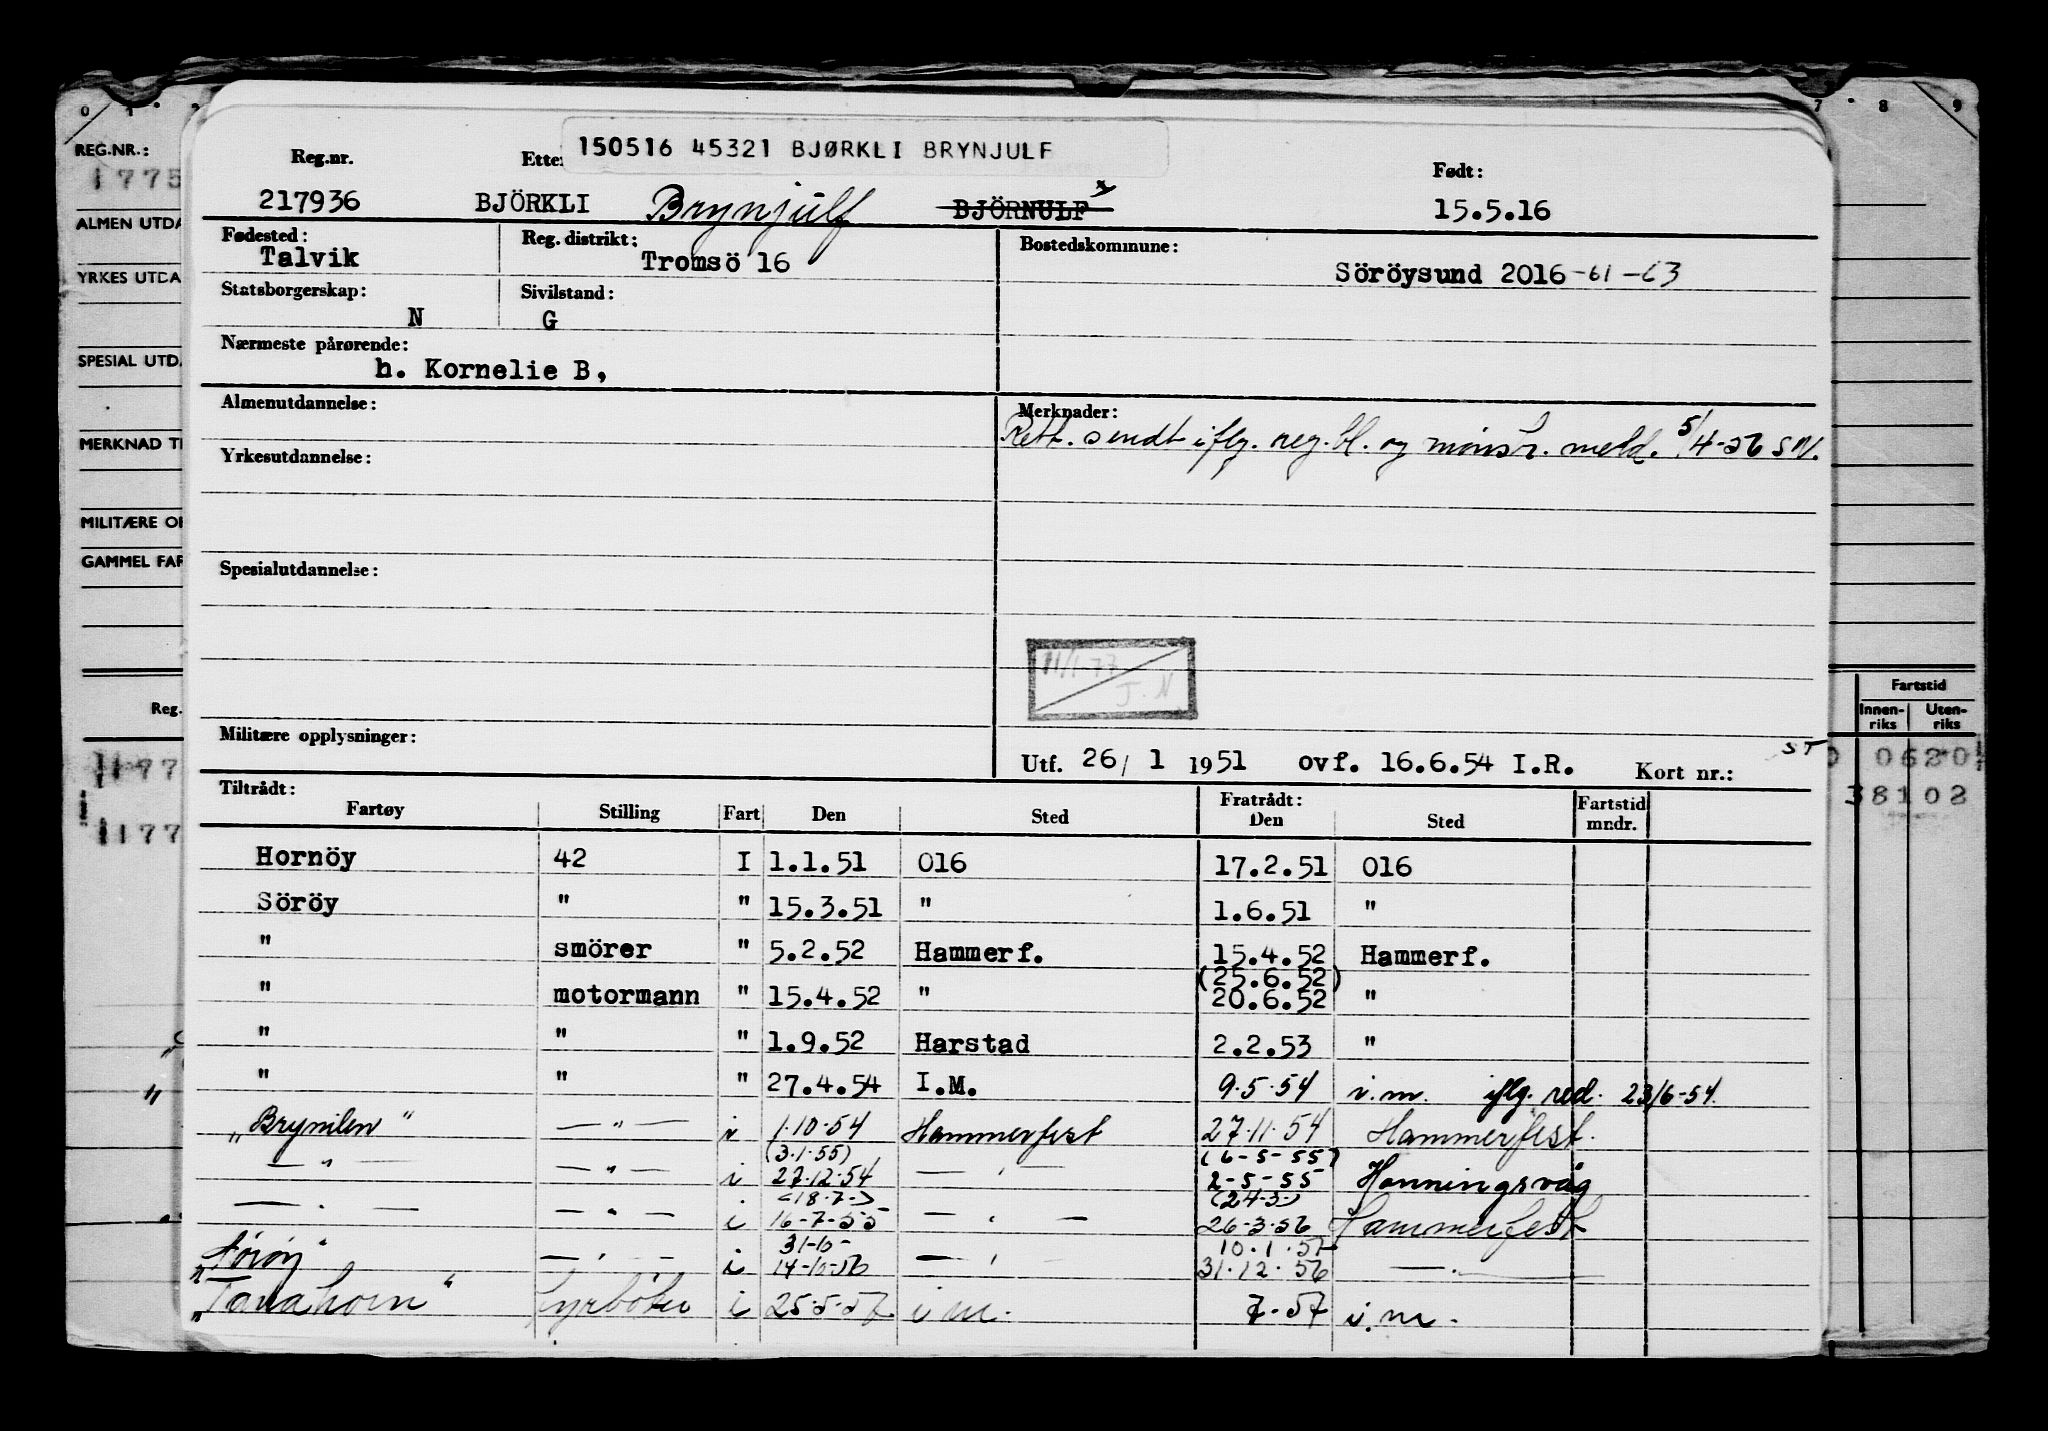 0 1 7 8 9
REG.NR.:
1775
ALMEN UTDA
YRKES UTDA
SPESIAL UTDA
MERKNAD TI
MILITÆRE OP
GAMMEL FAR
Reg.
Fartstid
Innen-riks Uten-riks
1177 0 0620
38102
1177
150516 45321 BJØRKLI BRYNJULF
Reg.nr. Etter Født:
217936 BJÖRKLI Brynjulf BJÖRNULF x 15.5.16
Fødested: Reg. distrikt: Bostedskommune:
Talvik Tromsö 16 Söröysund 2016 -61 -63
Statsborgerskap: Sivilstand:
N G
Nærmeste pårørende:
h. Kornelie B,
Almenutdannelse: Merknader:
Rett. sendt iflg. reg.bl. og mønstr. meld. 5/4-56 SM.
Yrkesutdannelse:
Spesialutdannelse:
11/1-77
J.N
Militære opplysninger:
Utf. 26/ 1 1951 ovf. 16.6.54 I.R. Kort nr.: ST
Tiltrådt: Fratrådt: Fartstid
Fartøy Stilling Fart Den Sted Den Sted mndr.
Hornöy 42 I 1.1.51 016 17.2.51 016
Söröy " " 15.3.51 " 1.6.51 "
" smörer " 5.2.52 Hammerf. 15.4.52 Hammerf.
(25.6.52)
" motormann " 15.4.52 " 20.6.52 "
" " " 1.9.52 Harstad 2.2.53 "
" " " 27.4.54 I.M. 9.5.54 i.m. iflg. red. 23/6-54.
"Brynilen" — " — i 1.10.54 Hammerfest 27.11.54 Hammerfest.
(3.1.55) (6-5-55)
— " — — " — i 27.12.54 — " — 2-5-55 Honningsvåg
(18.7-) (24.3-)
— " — — " — i 16-7-55 — " — 26-3-56 Hammerfest
31-10- 10.1.57
"Sörøy" — " — i 14-10-56 — " — 31.12.56 — " —
"Tanahorn" fyrböter i 25.5.57 i.m. 7.57 i.m.